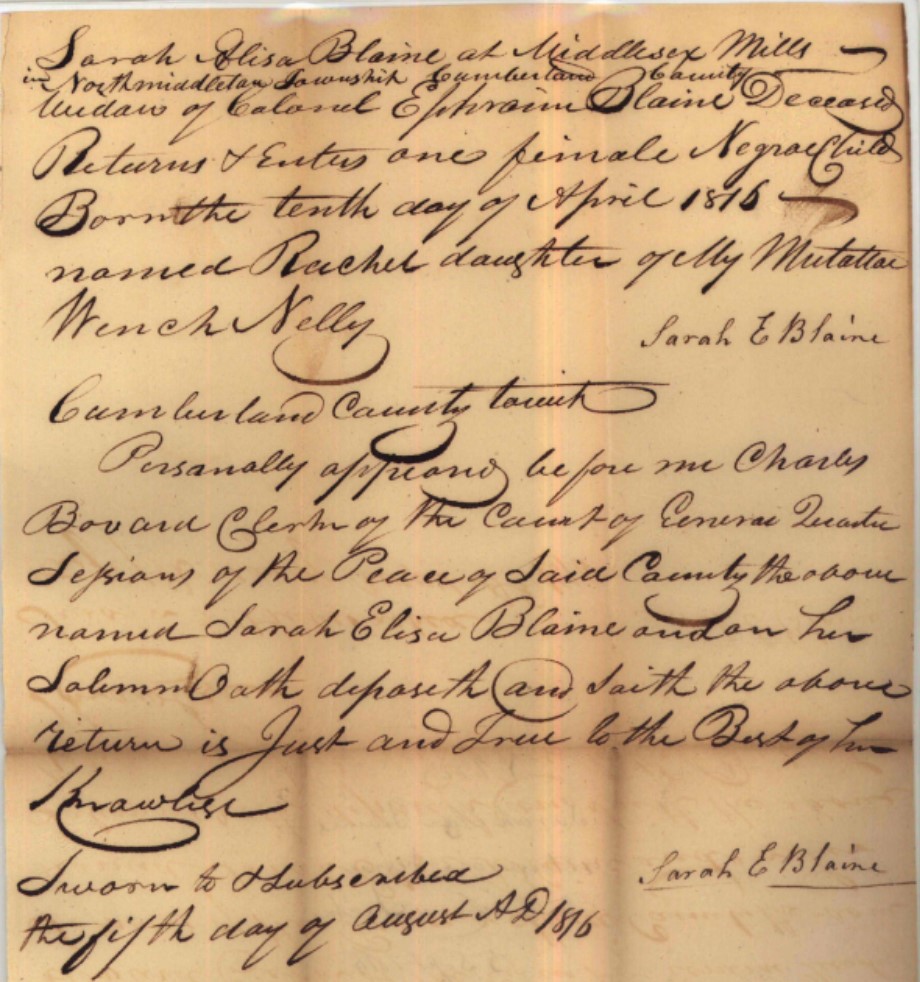 Sarah Elisa Blaine at Middlesex Mills
in Northmiddleton Township Cumberland County
Widow of Colonel Ephraim Blaine Deceased
Returns & Enters one female Negroe Child
Born the tenth day of April 1816
named Rachel daughter of My Mulattoe
Wench Nelly
Sarah E Blaine
Cumberland County towit
Personally appeared before me Charles
Bovard Clerk of the Court of General Quarter
Sessions of the Peace of Said County the above
named Sarah Elisa Blaine and on her
Solemn Oath deposeth and Saith the above
return is Just and True to the Best of her
Knowledge
Sworn to & Subscribed
Sarah E Blaine
the fifth day of August AD 1816